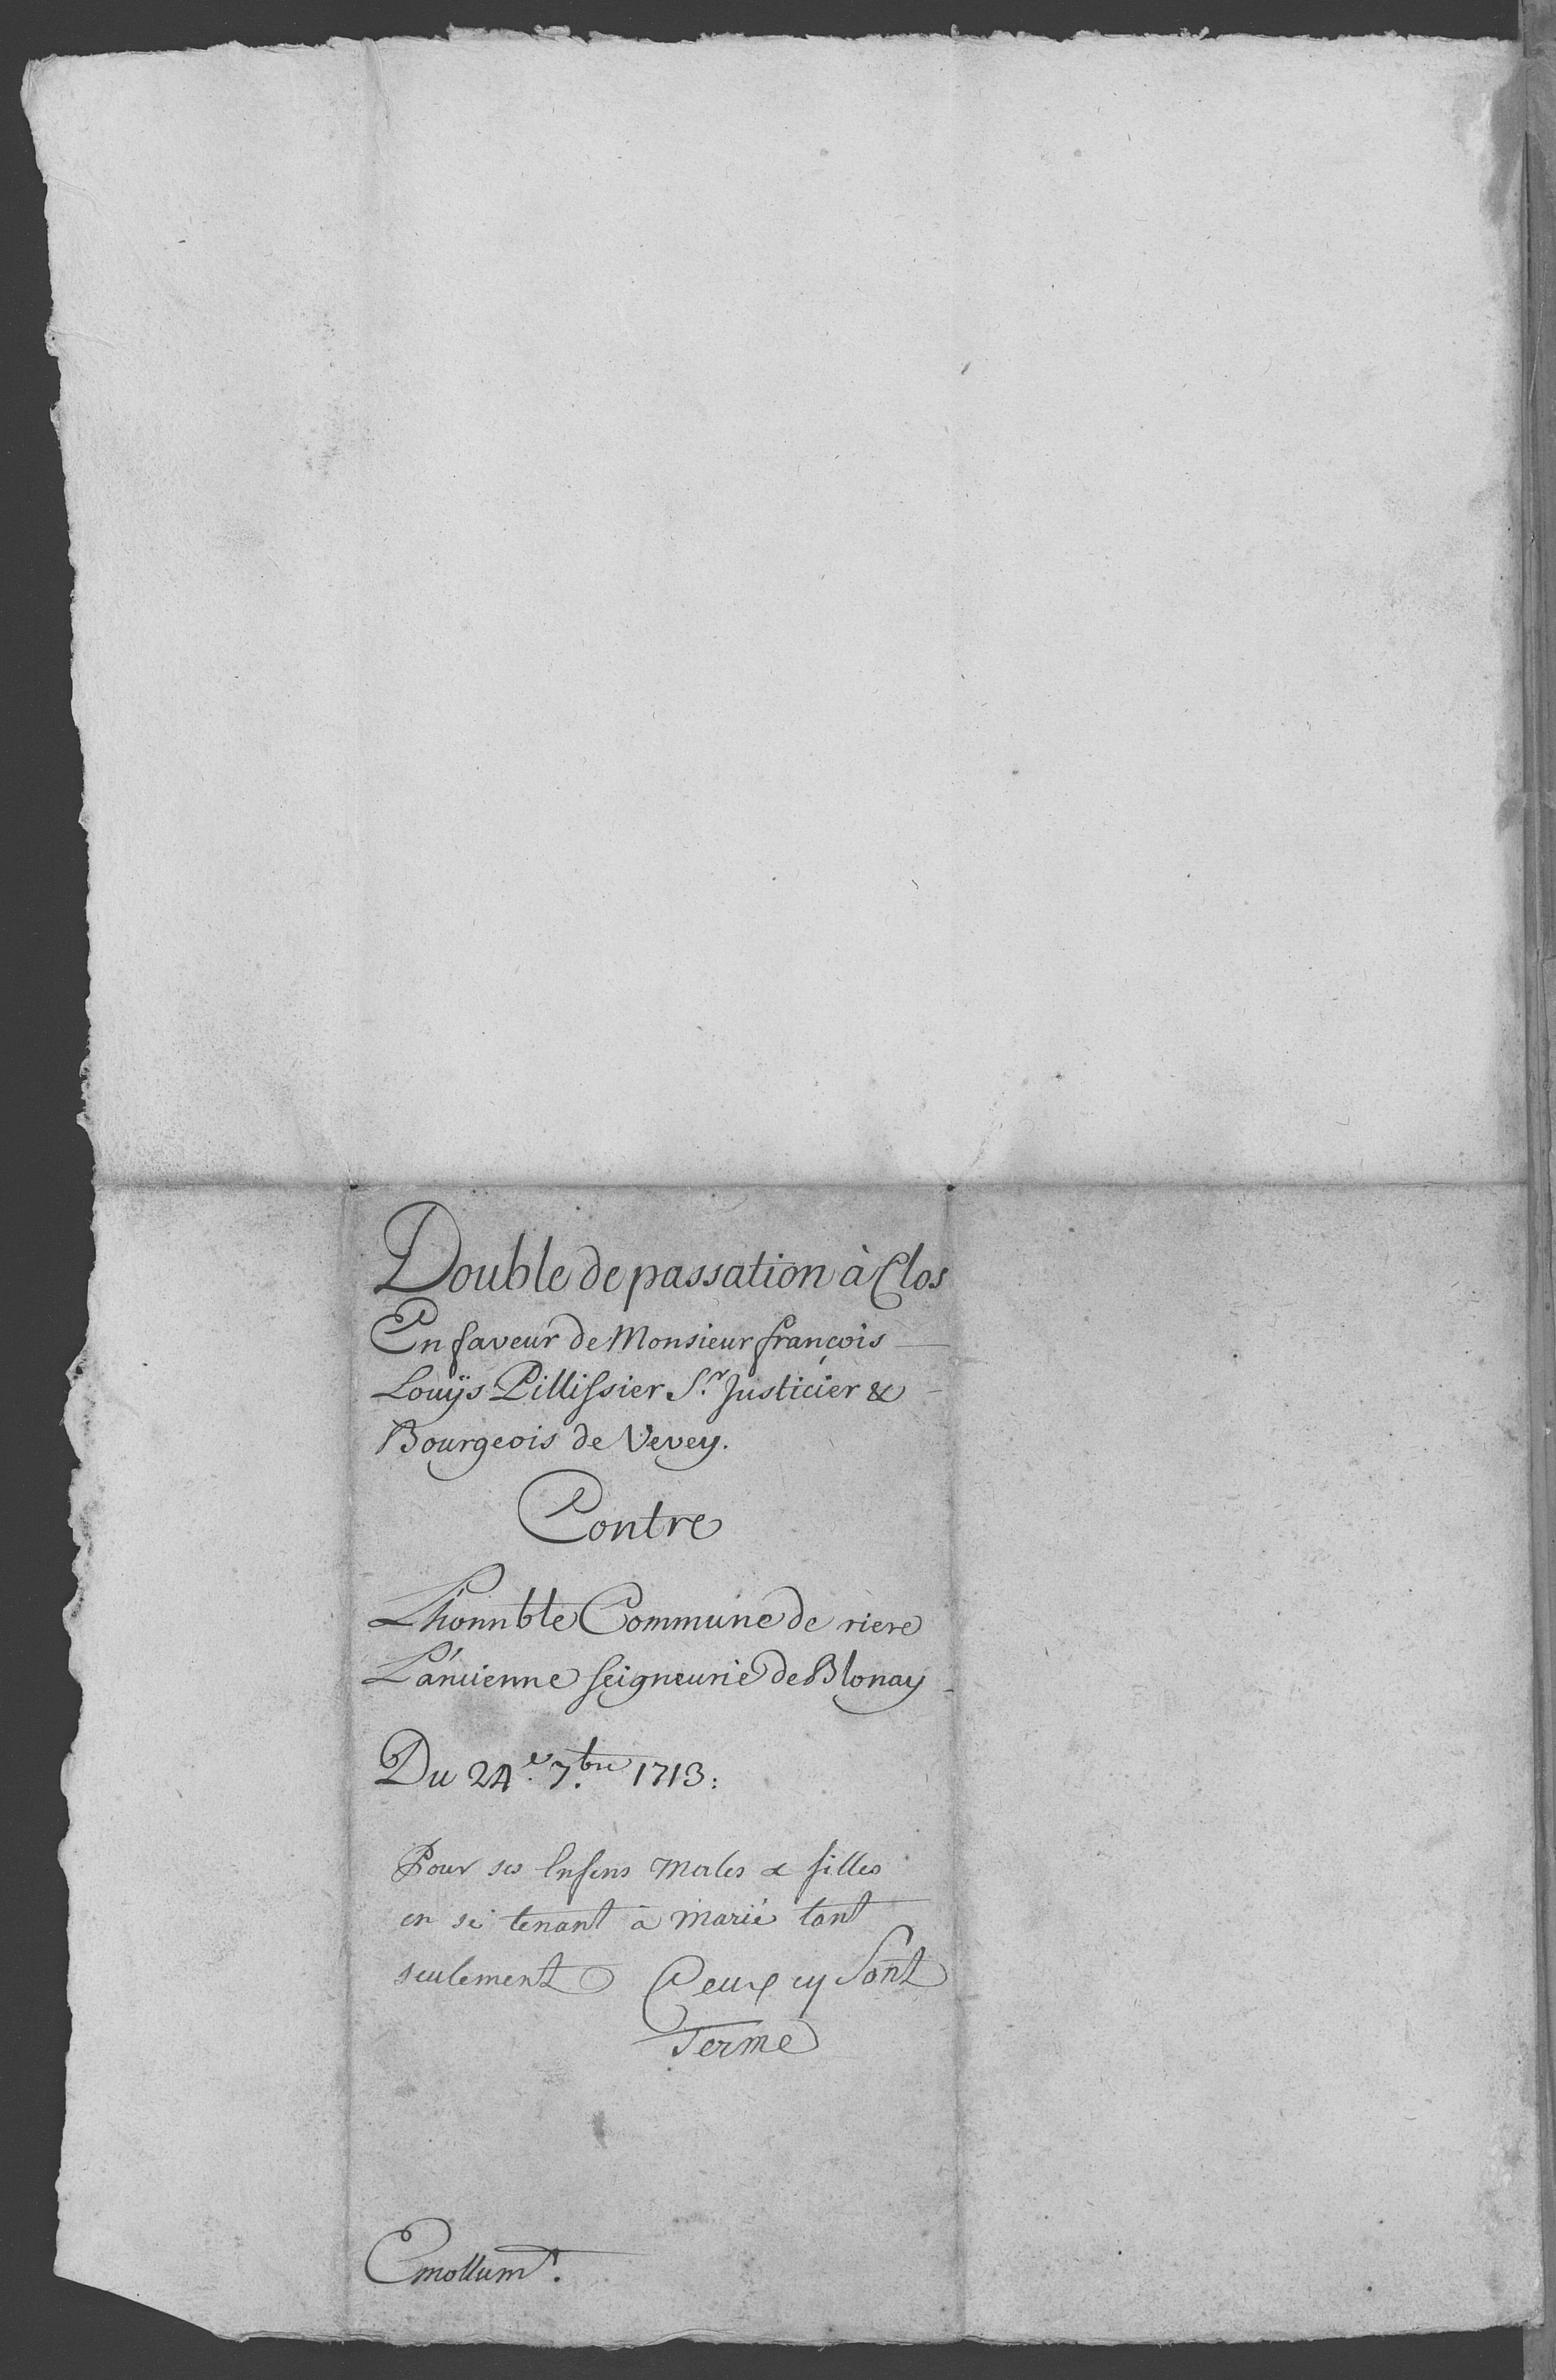 Double de passation à Clos
En faveur de Monsieur françois
Louÿs Pillissier Sr. Justicier &
Bourgeois de Vevey.
Contre
L'honnble Commune de riere
L'ancienne seigneurie de Blonay
Du 24e. 7.bre 1713:
Pour ses Enfens males & filles
en se tenant à Marié tant
seulement Ceux cy Sont
Terme
Emollumt.